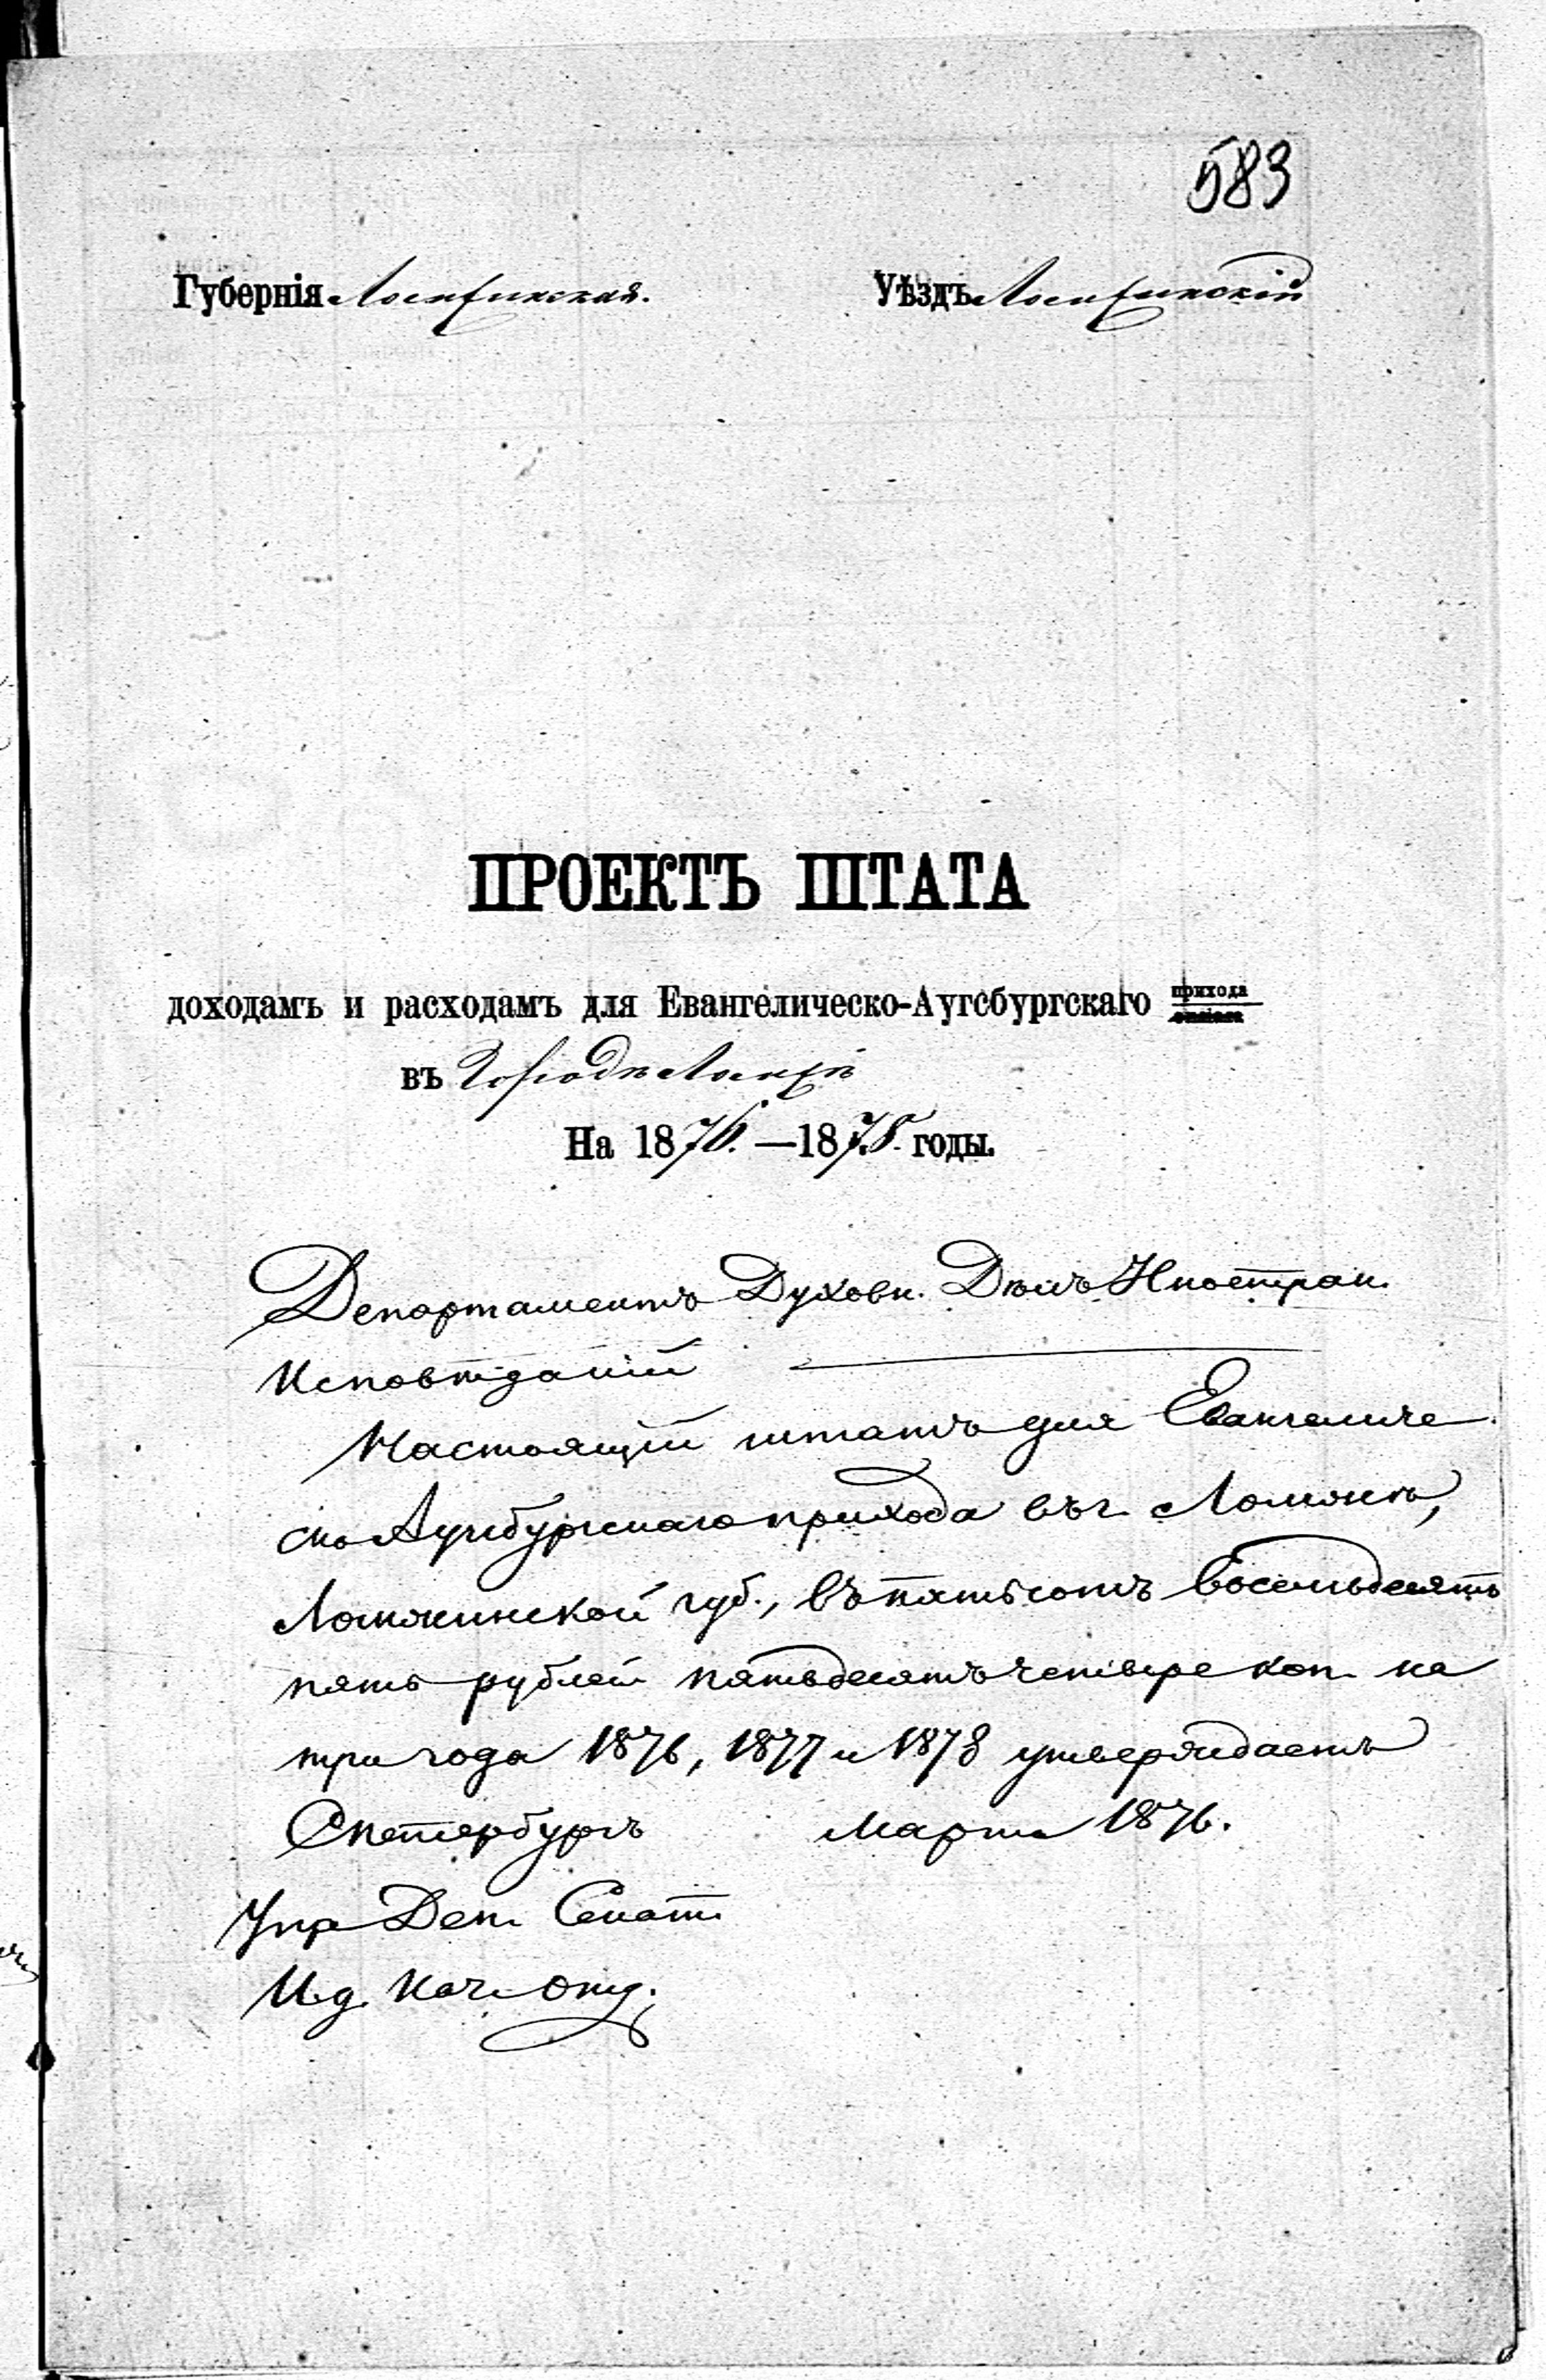 583
Губернія Ломжинская. Уѣздъ Ломжинскій
ПРОЕКТЪ ШТАТА
доходамъ и расходамъ для Евангелическо-Аугсбургскаго прихода
въ Городѣ Ломжѣ
На 1876.—1878. годы.
Департаментъ Духовн. Дѣлъ Иностран.
Исповѣданій
Настоящій штатъ для Евангеличе
ско Аугсбургскаго прихода въ г. Ломжѣ,
Ломжинской губ., въ пятьсотъ восемьдесятъ
пять рублей пятьдесятъ четыре коп. на
три года 1876, 1877 и 1878 утверждаетъ
С петербургъ Марта 1876.
Упр Деп. Сенат.
И.д. Нач. Отд.